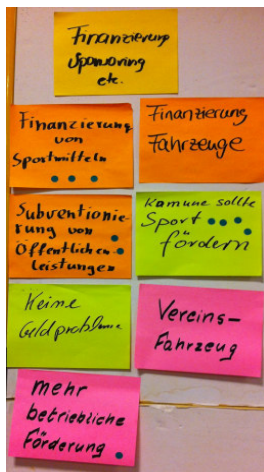 Finanzierung
Sponsoring
etc.
Finanzierung
von
Sportmitteln
Finanzierung
Fahrzeuge
Subventionie-
rung von
Öffentlichen
Leistungen
Kamune sollte
Sport
fördern
Keine
Geldprobleme
Vereins-
Fahrzeug
mehr
betriebliche
Förderung